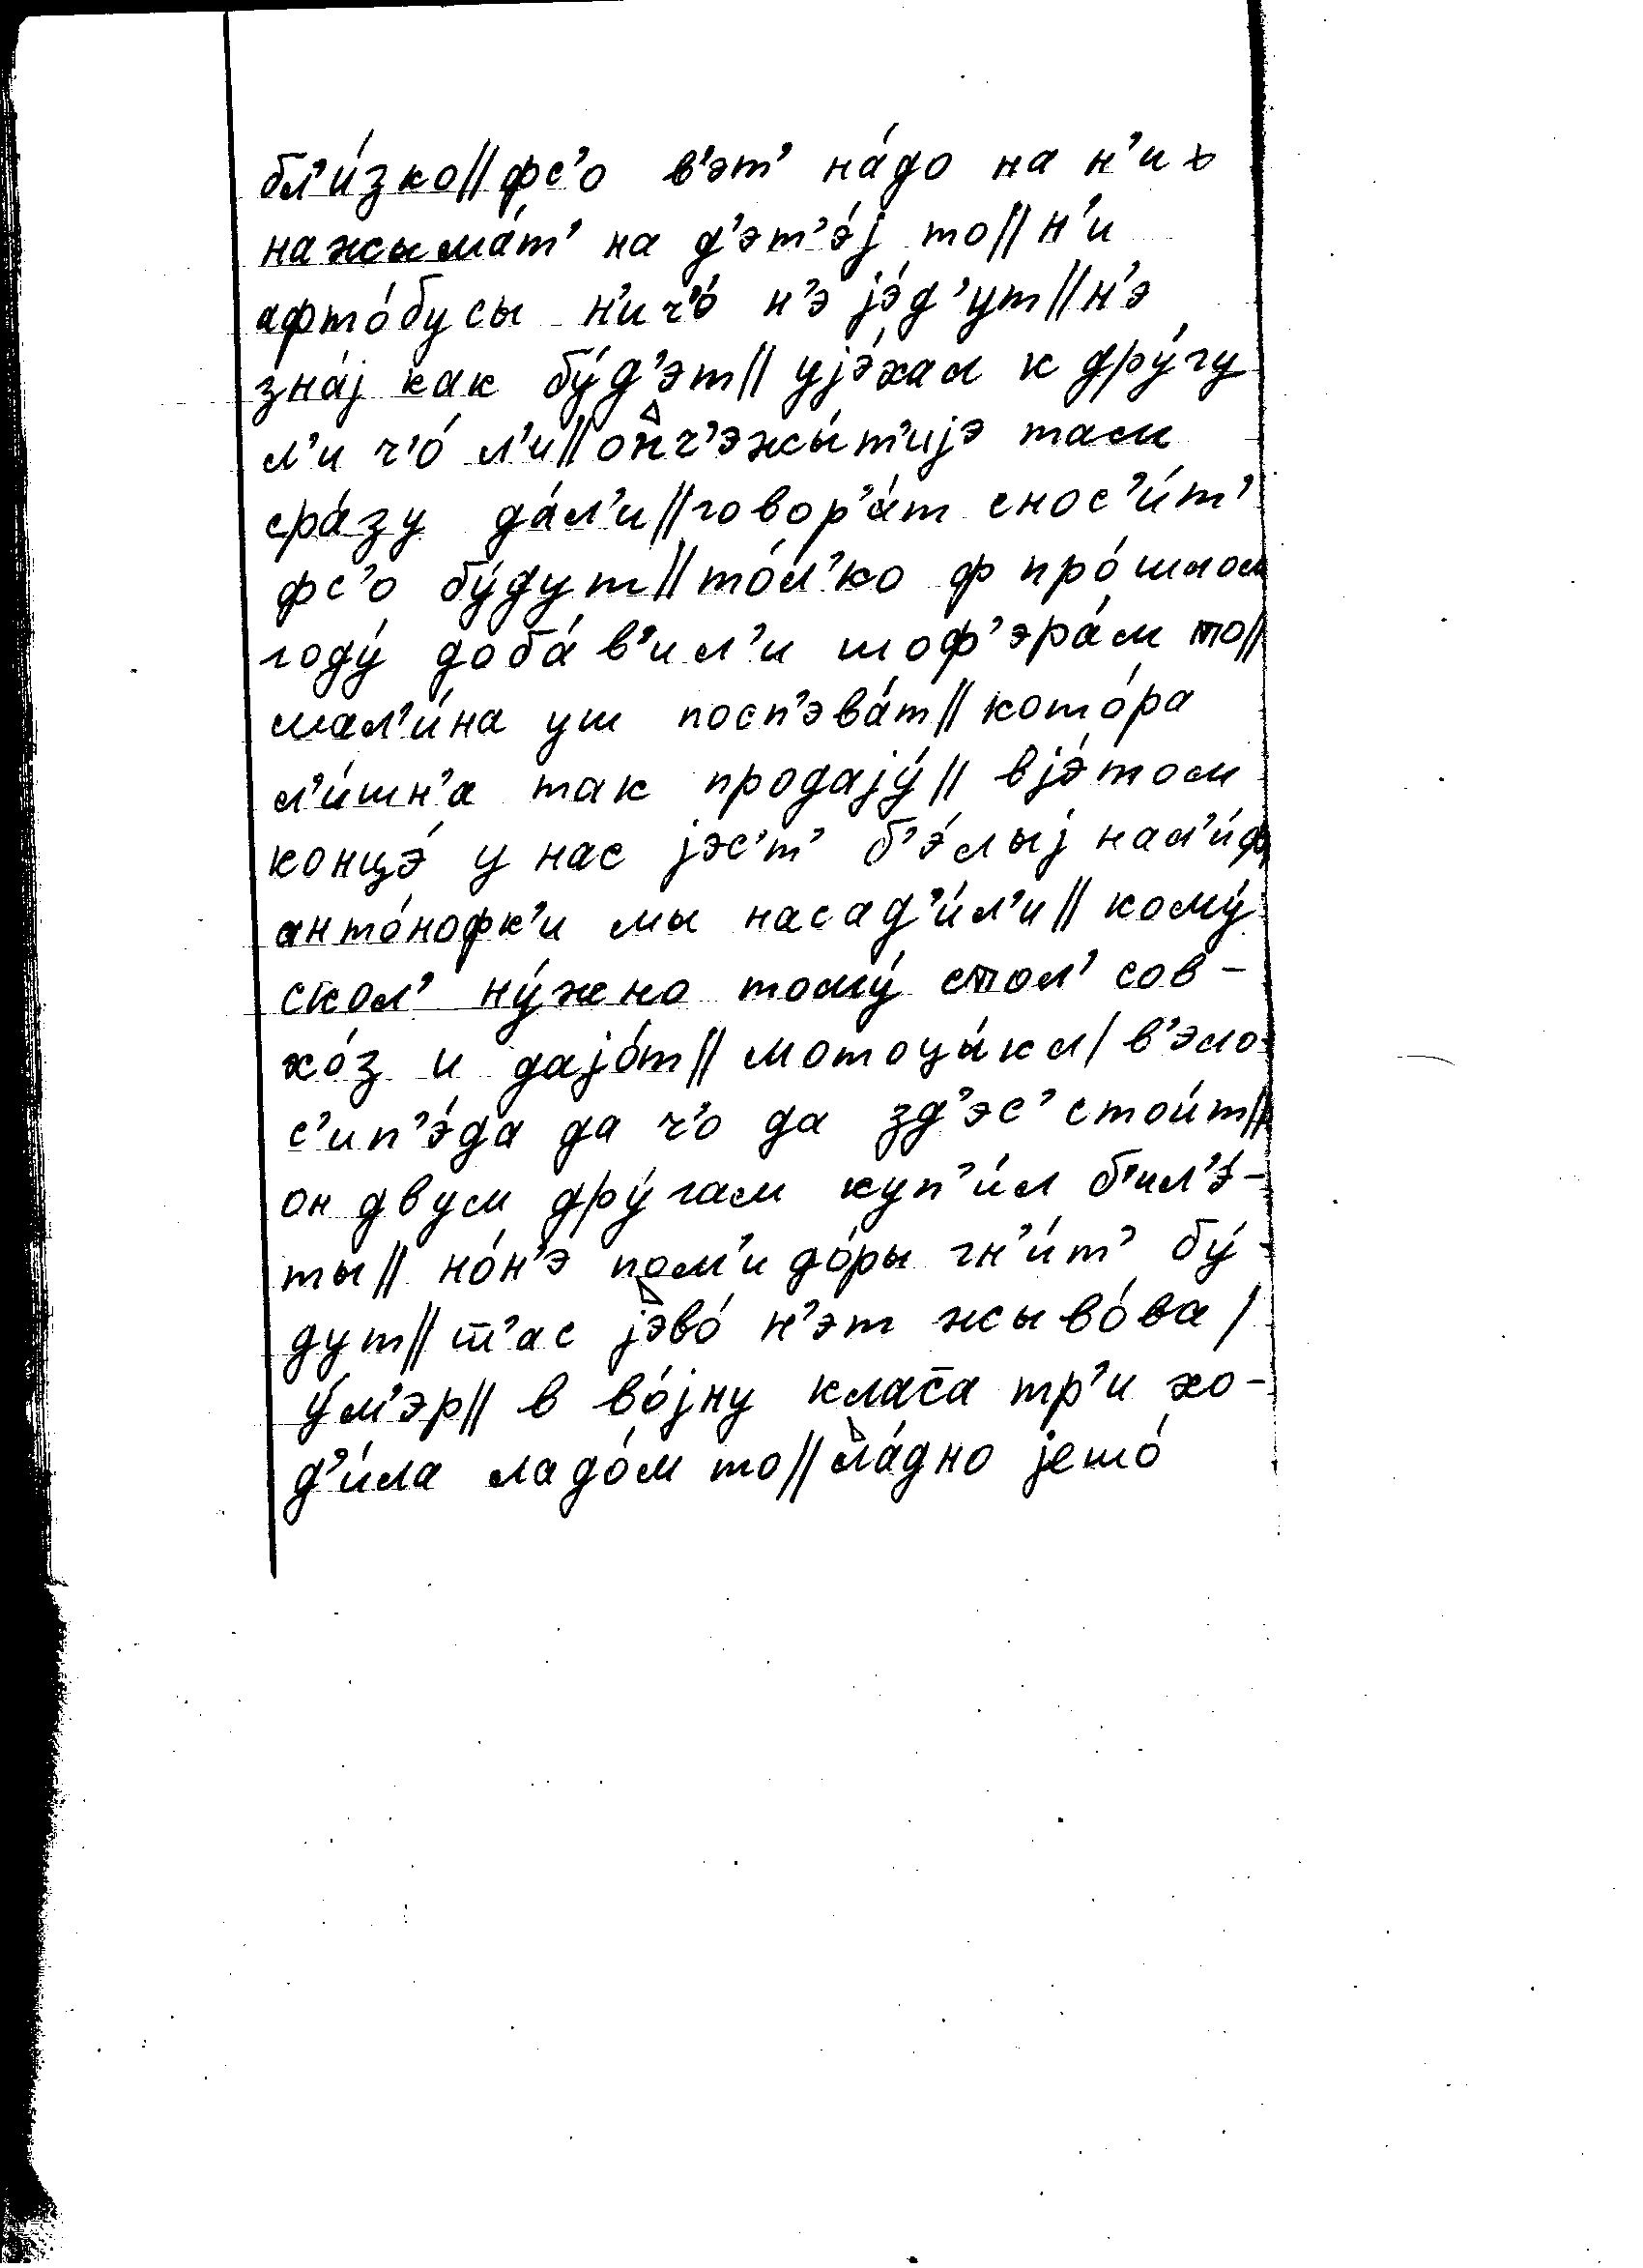 бл’и́зко || фс’о в’эт’ на́до на н’их
нажыма́т’ на д’эт’э́j то || н’и
афто́бусы н’ич’о́ н’э jэ́д’ут || н’э
зна́j как бу́д’эт || уjэ́хал к дру́гу
л’и ч’о́ л’и || онч’эжы́т’иjэ там
сра́зу да́л’и || говор’а́т снос’и́т’
фс’о бу́дут || то́л’ко ф про́шлом
году́ доба́в’ил’и шоф’эра́м то ||
мал’и́на уш посп’эва́т || кото́ра
л’и́шн’а так продаjу́ || вjэ́том
концэ́ у нас jэс’т’ б’э́лыj нал’и́ф,
анто́нофк’и мы насад’и́л’и || кому́
скол’ ну́жно тому́ стол’ сов-
хо́з и даjо́т || мотоцы́кл / в’эло-
с’ип’э́да да ч’о да зд’эс’ стои́т ||
он двум дру́гам куп’и́л б’ил’э́-
ты || но́н’э пом’идо́ры гн’и́т’ бу́-
дут || т̅’ас jэво́ н’эт жыво́ва /
у́м’эр || в во́jну клас̅а тр’и хо-
д’и́ла ладо́м то || ла́дно jешо́